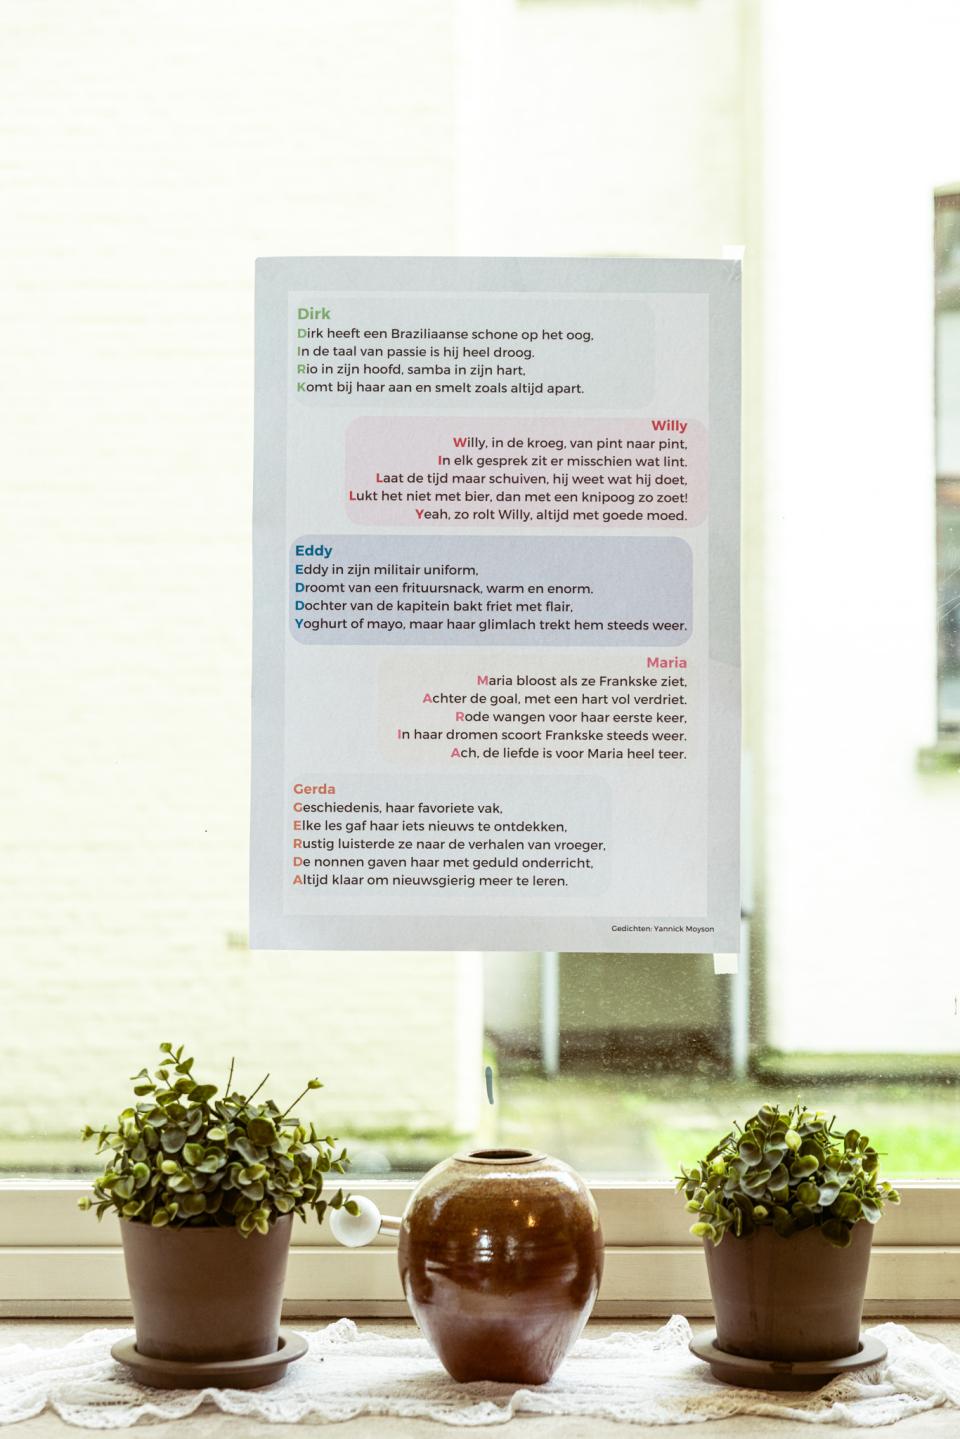 Dirk
Dirk heeft een Braziliaanse schone op het oog,
In de taal van passie is hij heel droog.
Rio in zijn hoofd, samba in zijn hart,
Komt bij haar aan en smelt zoals altijd apart.
Willy
Willy, in de kroeg, van pint naar pint,
In elk gesprek zit er misschien wat lint.
Laat de tijd maar schuiven, hij weet wat hij doet,
Lukt het niet met bier, dan met een knipoog zo zoet!
Yeah, zo rolt Willy, altijd met goede moed.
Eddy
Eddy in zijn militair uniform,
Droomt van een frituursnack, warm en enorm.
Dochter van de kapitein bakt friet met flair,
Yoghurt of mayo, maar haar glimlach trekt hem steeds weer.
Maria
Maria bloost als ze Frankske ziet,
Achter de goal, met een hart vol verdriet.
Rode wangen voor haar eerste keer,
In haar dromen scoort Frankske steeds weer.
Ach, de liefde is voor Maria heel teer.
Gerda
Geschiedenis, haar favoriete vak,
Elke les gaf haar iets nieuws te ontdekken,
Rustig luisterde ze naar de verhalen van vroeger,
De nonnen gaven haar met geduld onderricht,
Altijd klaar om nieuwsgierig meer te leren.
Gedichten: Yannick Moyson